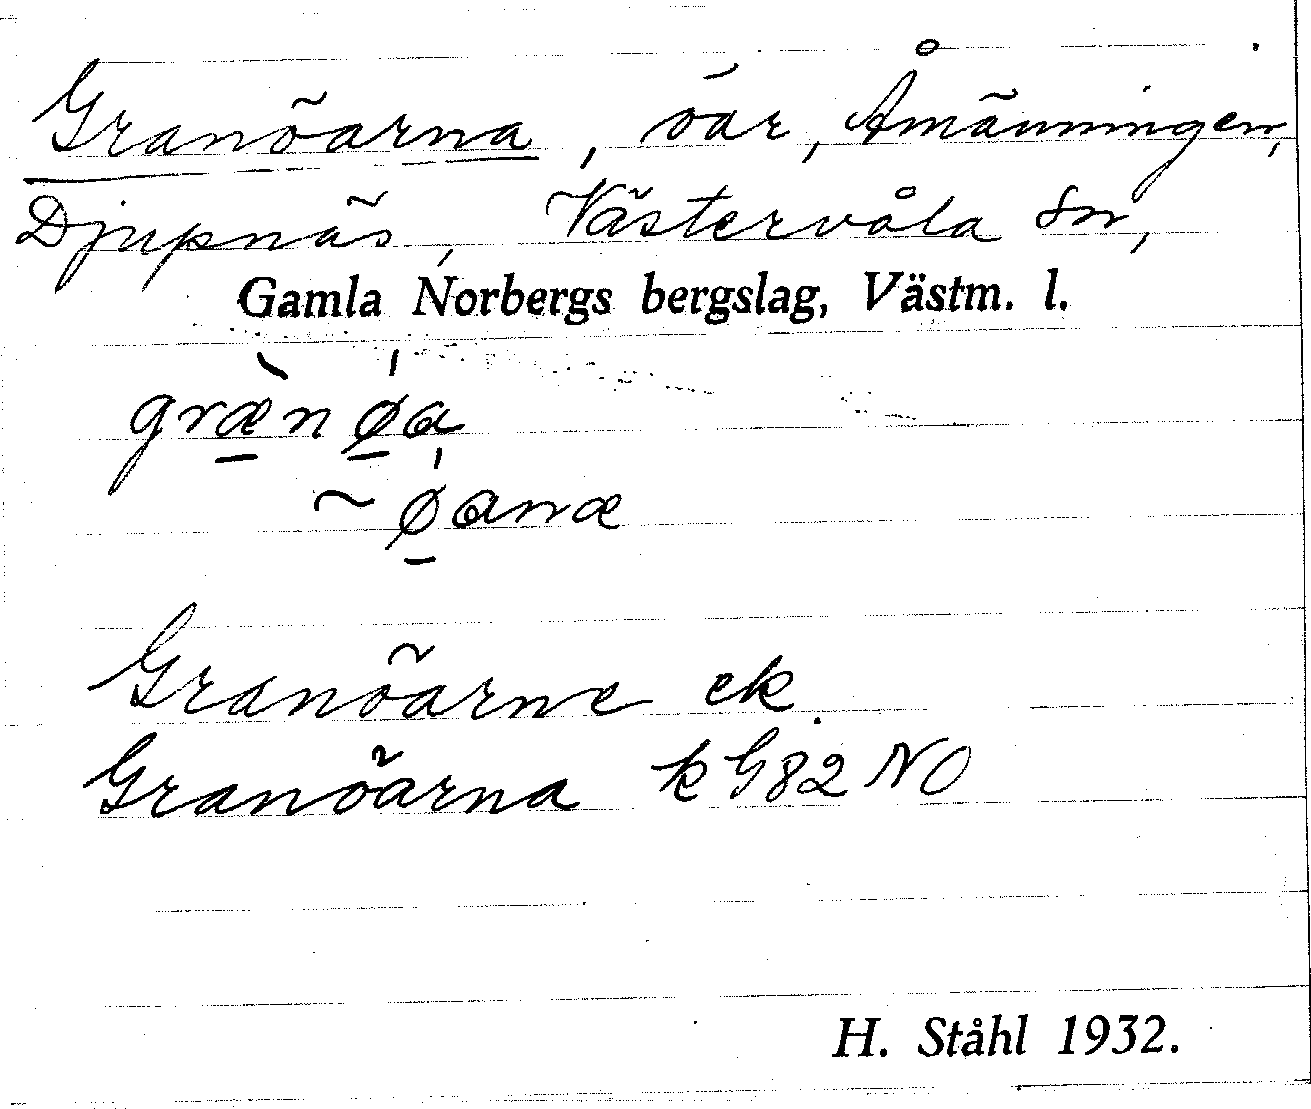 Granöarna, öar, Åmänningen,
Djupnäs, Västervåla sn,
Gamla Norbergs bergslag, Västm. l.
græ̀nø̍a
~ø̍anæ
Granöarne ek.
Granöarna k G82 NO
H. Ståhl 1932.